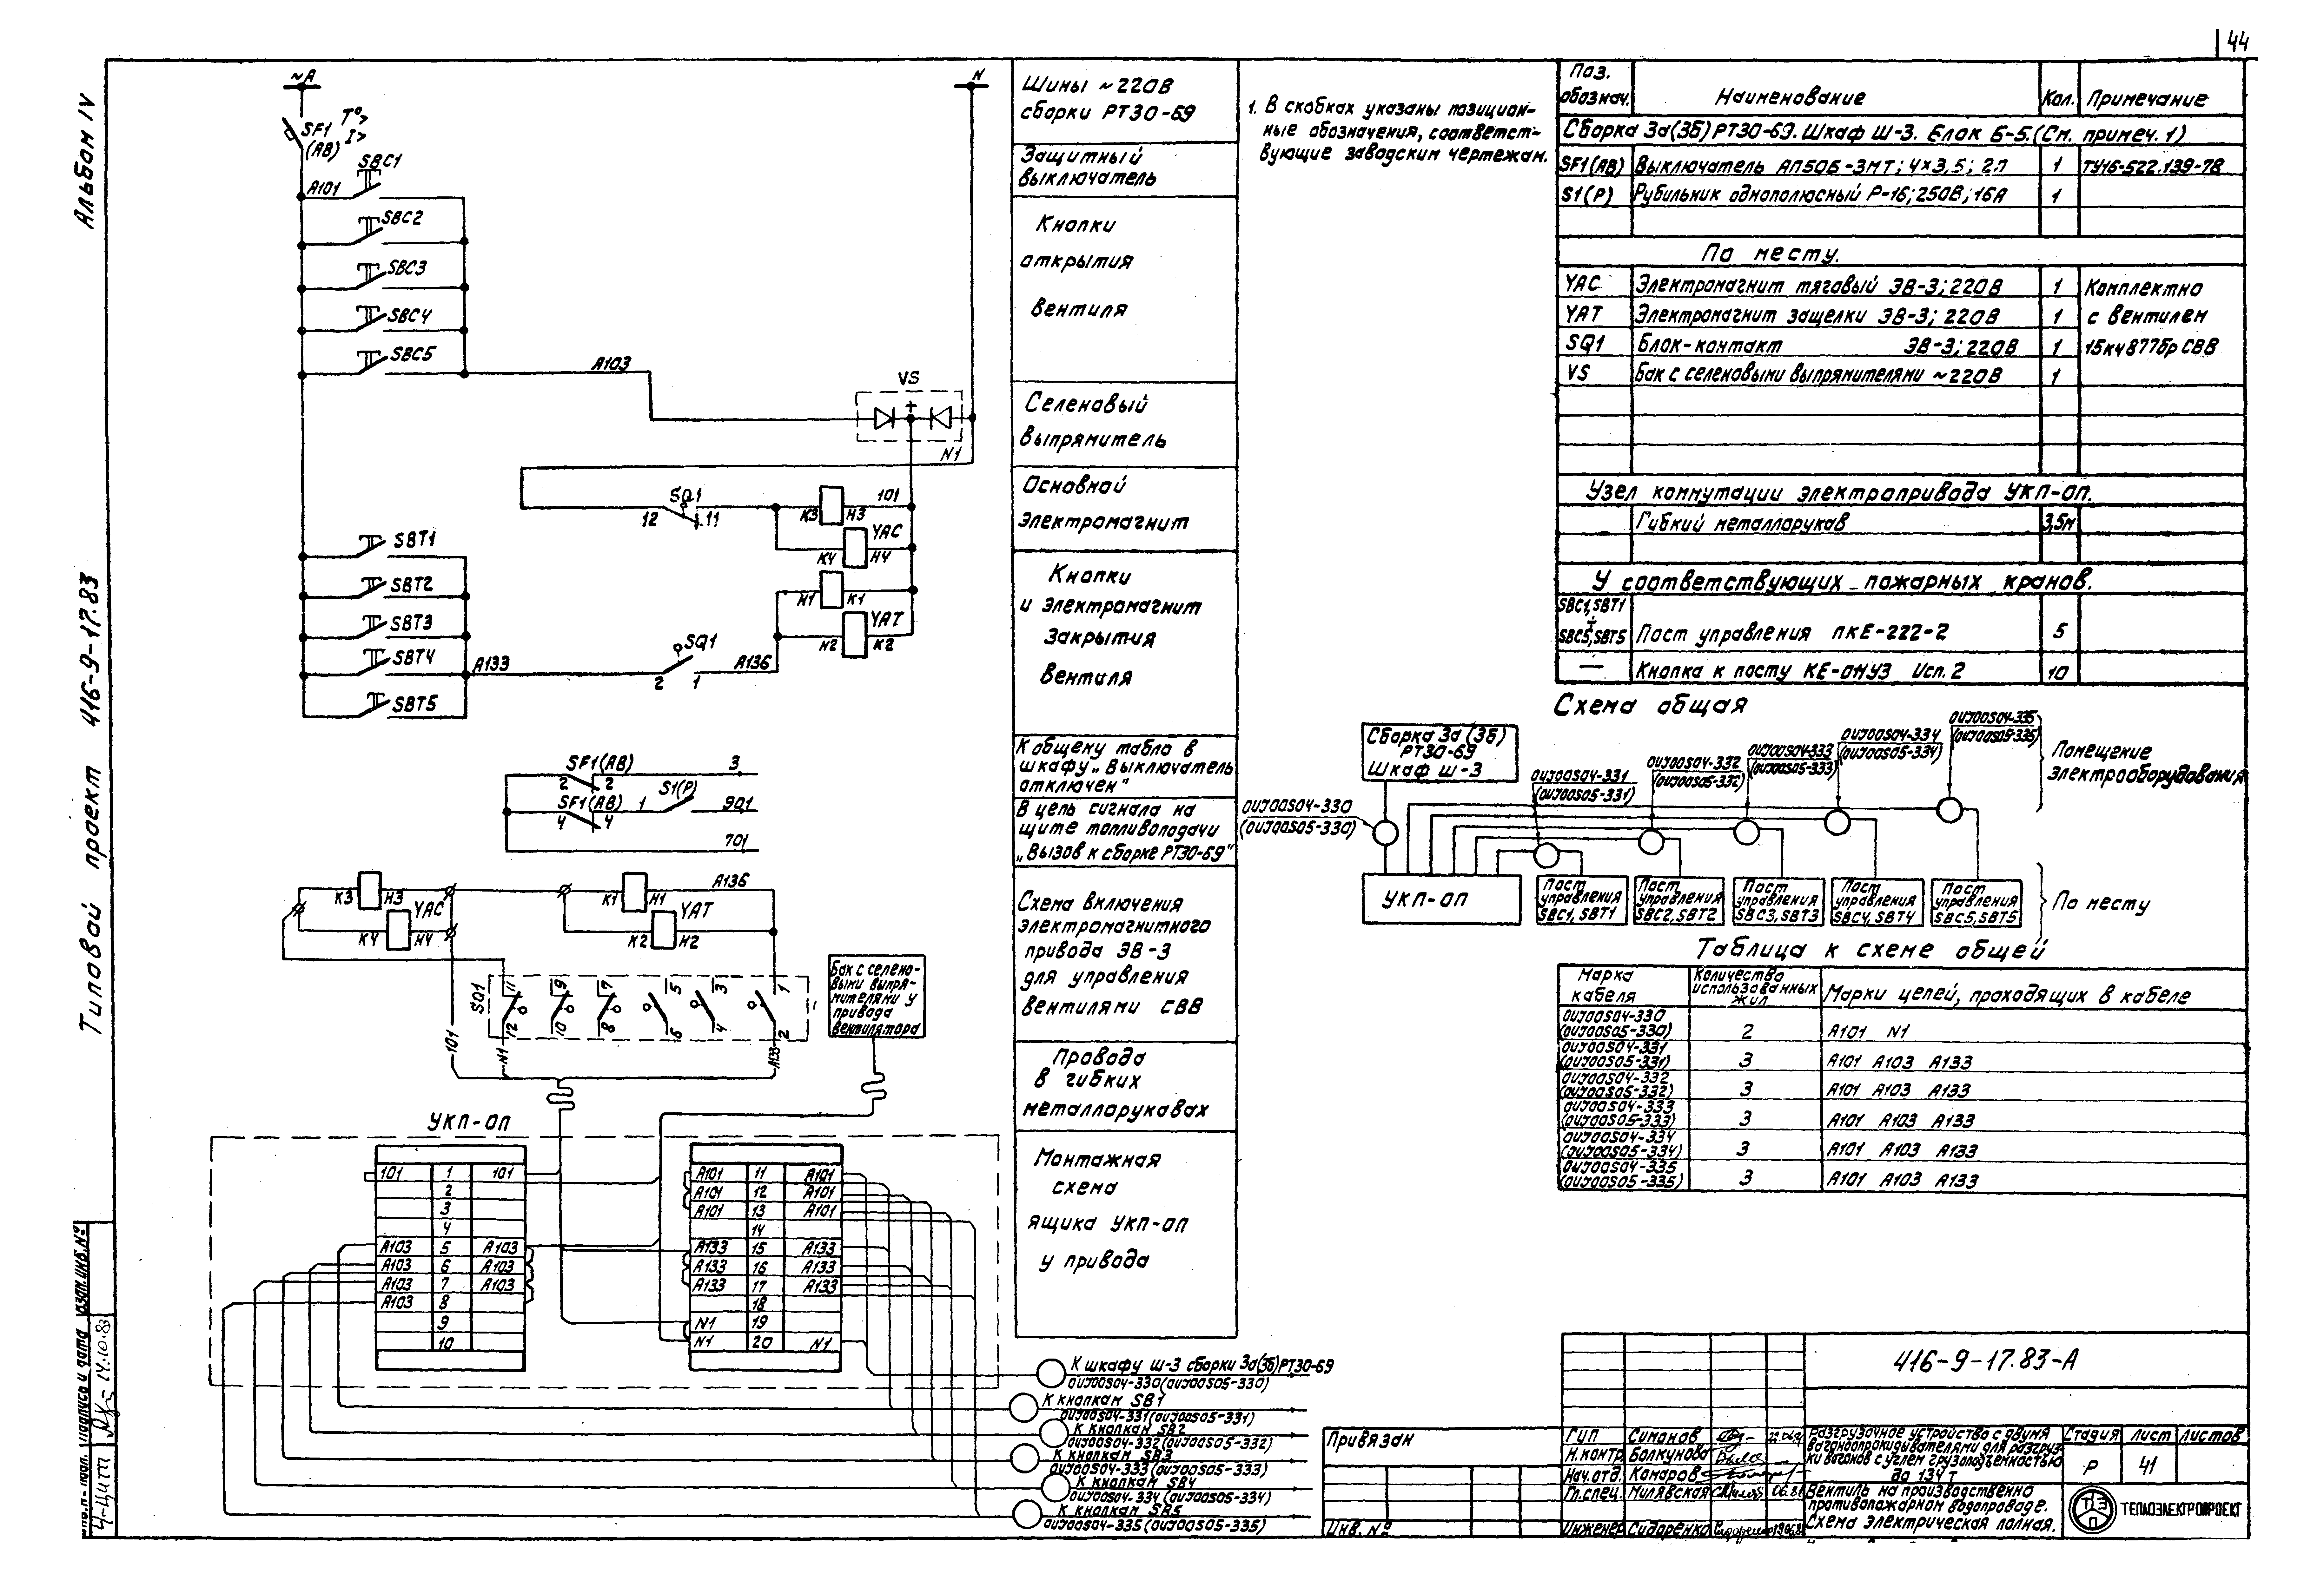 44
Альбом IV
Типовой проект 416-9-17.83
~А
N
SF1
(АВ)
T°>
I>
А101
SBC1
SBC2
SBC3
SBC4
SBC5
А103
VS
+
N1
SQ1
12
11
К3
Н3
101
YAC
К4
Н4
SBT1
SBT2
SBT3
SBT4
SBT5
А133
SQ1
2
1
А136
Н1
К1
YAT
Н2
К2
SF1(АВ)
2
2
3
SF1(АВ)
4
4
1
S1(Р)
901
701
К3
Н3
YAC
К4
Н4
К1
Н1
А136
YAT
К2
Н2
SQ1
11
12
9
10
7
8
5
6
3
4
1
2
101
N1
А133
Бак с селено-
выми выпря-
мителями у
привода
вентилятора
УКП-ОП
101 1 101
2
3
4
А103 5 А103
А103 6 А103
А103 7 А103
А103 8
9
10
А101 11 А101
А101 12 А101
А101 13 А101
14
А133 15 А133
А133 16 А133
А133 17 А133
18
N1 19
N1 20 N1
К шкафу Ш-3 сборки 3а(3б)РТ30-69
0UJ00S04-330(0UJ00S05-330)
К кнопкам SB1
0UJ00S04-331(0UJ00S05-331)
К кнопкам SB2
0UJ00S04-332(0UJ00S05-332)
К кнопкам SB3
0UJ00S04-333(0UJ00S05-333)
К кнопкам SB4
0UJ00S04-334(0UJ00S05-334)
К кнопкам SB5
0UJ00S04-335(0UJ00S05-335)
Шины ~220В
сборки РТ30-69
Защитный
выключатель
Кнопки
открытия
вентиля
Селеновый
выпрямитель
Основной
электромагнит
Кнопки
и электромагнит
закрытия
вентиля
К общему табло в
шкафу „Выключатель
отключен"
В цепь сигнала на
щите топливоподачи
„Вызов к сборке РТ30-69"
Схема включения
электромагнитного
привода ЭВ-3
для управления
вентилями СВВ
Провода
в гибких
металлорукавах
Монтажная
схема
ящика УКП-ОП
у привода
1. В скобках указаны позицион-
ные обозначения, соответст-
вующие заводским чертежам.
Поз.
обознач. Наименование Кол. Примечание
Сборка 3а(3б) РТ30-69. Шкаф Ш-3. Блок Б-5.(См. примеч. 1)
SF1(АВ) Выключатель АП50Б-3МТ; 4×3,5; 2.П 1 ТУ16-522.139-78
S1(Р) Рубильник однополюсный Р-16; 250В; 16А 1
По месту.
YAC Электромагнит тяговый ЭВ-3; 220В 1 Комплектно
YAT Электромагнит защелки ЭВ-3; 220В 1 с вентилем
SQ1 Блок-контакт ЭВ-3; 220В 1 15кч877бр СВВ
VS Бак с селеновыми выпрямителями ~220В 1
Узел коммутации электропривода УКП-ОП.
Гибкий металлорукав 3,5м
У соответствующих пожарных кранов.
SBC1, SBT1
÷
SBC5, SBT5 Пост управления ПКЕ-222-2 5
— Кнопка к посту КЕ-011У3 Исп. 2 10
Схема общая
Сборка 3а (3б)
РТ30-69
Шкаф Ш-3
0UJ00S04-330
(0UJ00S05-330)
0UJ00S04-331
(0UJ00S05-331)
0UJ00S04-332
(0UJ00S05-332)
0UJ00S04-333
(0UJ00S05-333)
0UJ00S04-334
(0UJ00S05-334)
0UJ00S04-335
(0UJ00S05-335)
Помещение
электрооборудования
УКП-ОП
Пост
управления
SBC1, SBT1
Пост
управления
SBC2, SBT2
Пост
управления
SBC3, SBT3
Пост
управления
SBC4, SBT4
Пост
управления
SBC5, SBT5
По месту
Таблица к схеме общей
Марка
кабеля
Количество
использованных
жил
Марки цепей, проходящих в кабеле
0UJ00S04-330
(0UJ00S05-330) 2 А101 N1
0UJ00S04-331
(0UJ00S05-331) 3 А101 А103 А133
0UJ00S04-332
(0UJ00S05-332) 3 А101 А103 А133
0UJ00S04-333
(0UJ00S05-333) 3 А101 А103 А133
0UJ00S04-334
(0UJ00S05-334) 3 А101 А103 А133
0UJ00S04-335
(0UJ00S05-335) 3 А101 А103 А133
416-9-17.83-А
Привязан
Инв. №
ГИП Симонов
Н.контр. Болкунова
Нач.отд. Комаров
Гл.спец. Милявская 06.81
Инженер Сидоренко
Разгрузочное устройство с двумя
вагоноопрокидывателями для разгруз-
ки вагонов с углем грузоподъемностью
до 134 т
Стадия Лист Листов
Р 41
Вентиль на производственно
противопожарном водопроводе.
Схема электрическая полная.
ТЭП
ТЕПЛОЭЛЕКТРОПРОЕКТ
Инв.№ подл. Подпись и дата Взам.инв.№
14.10.83